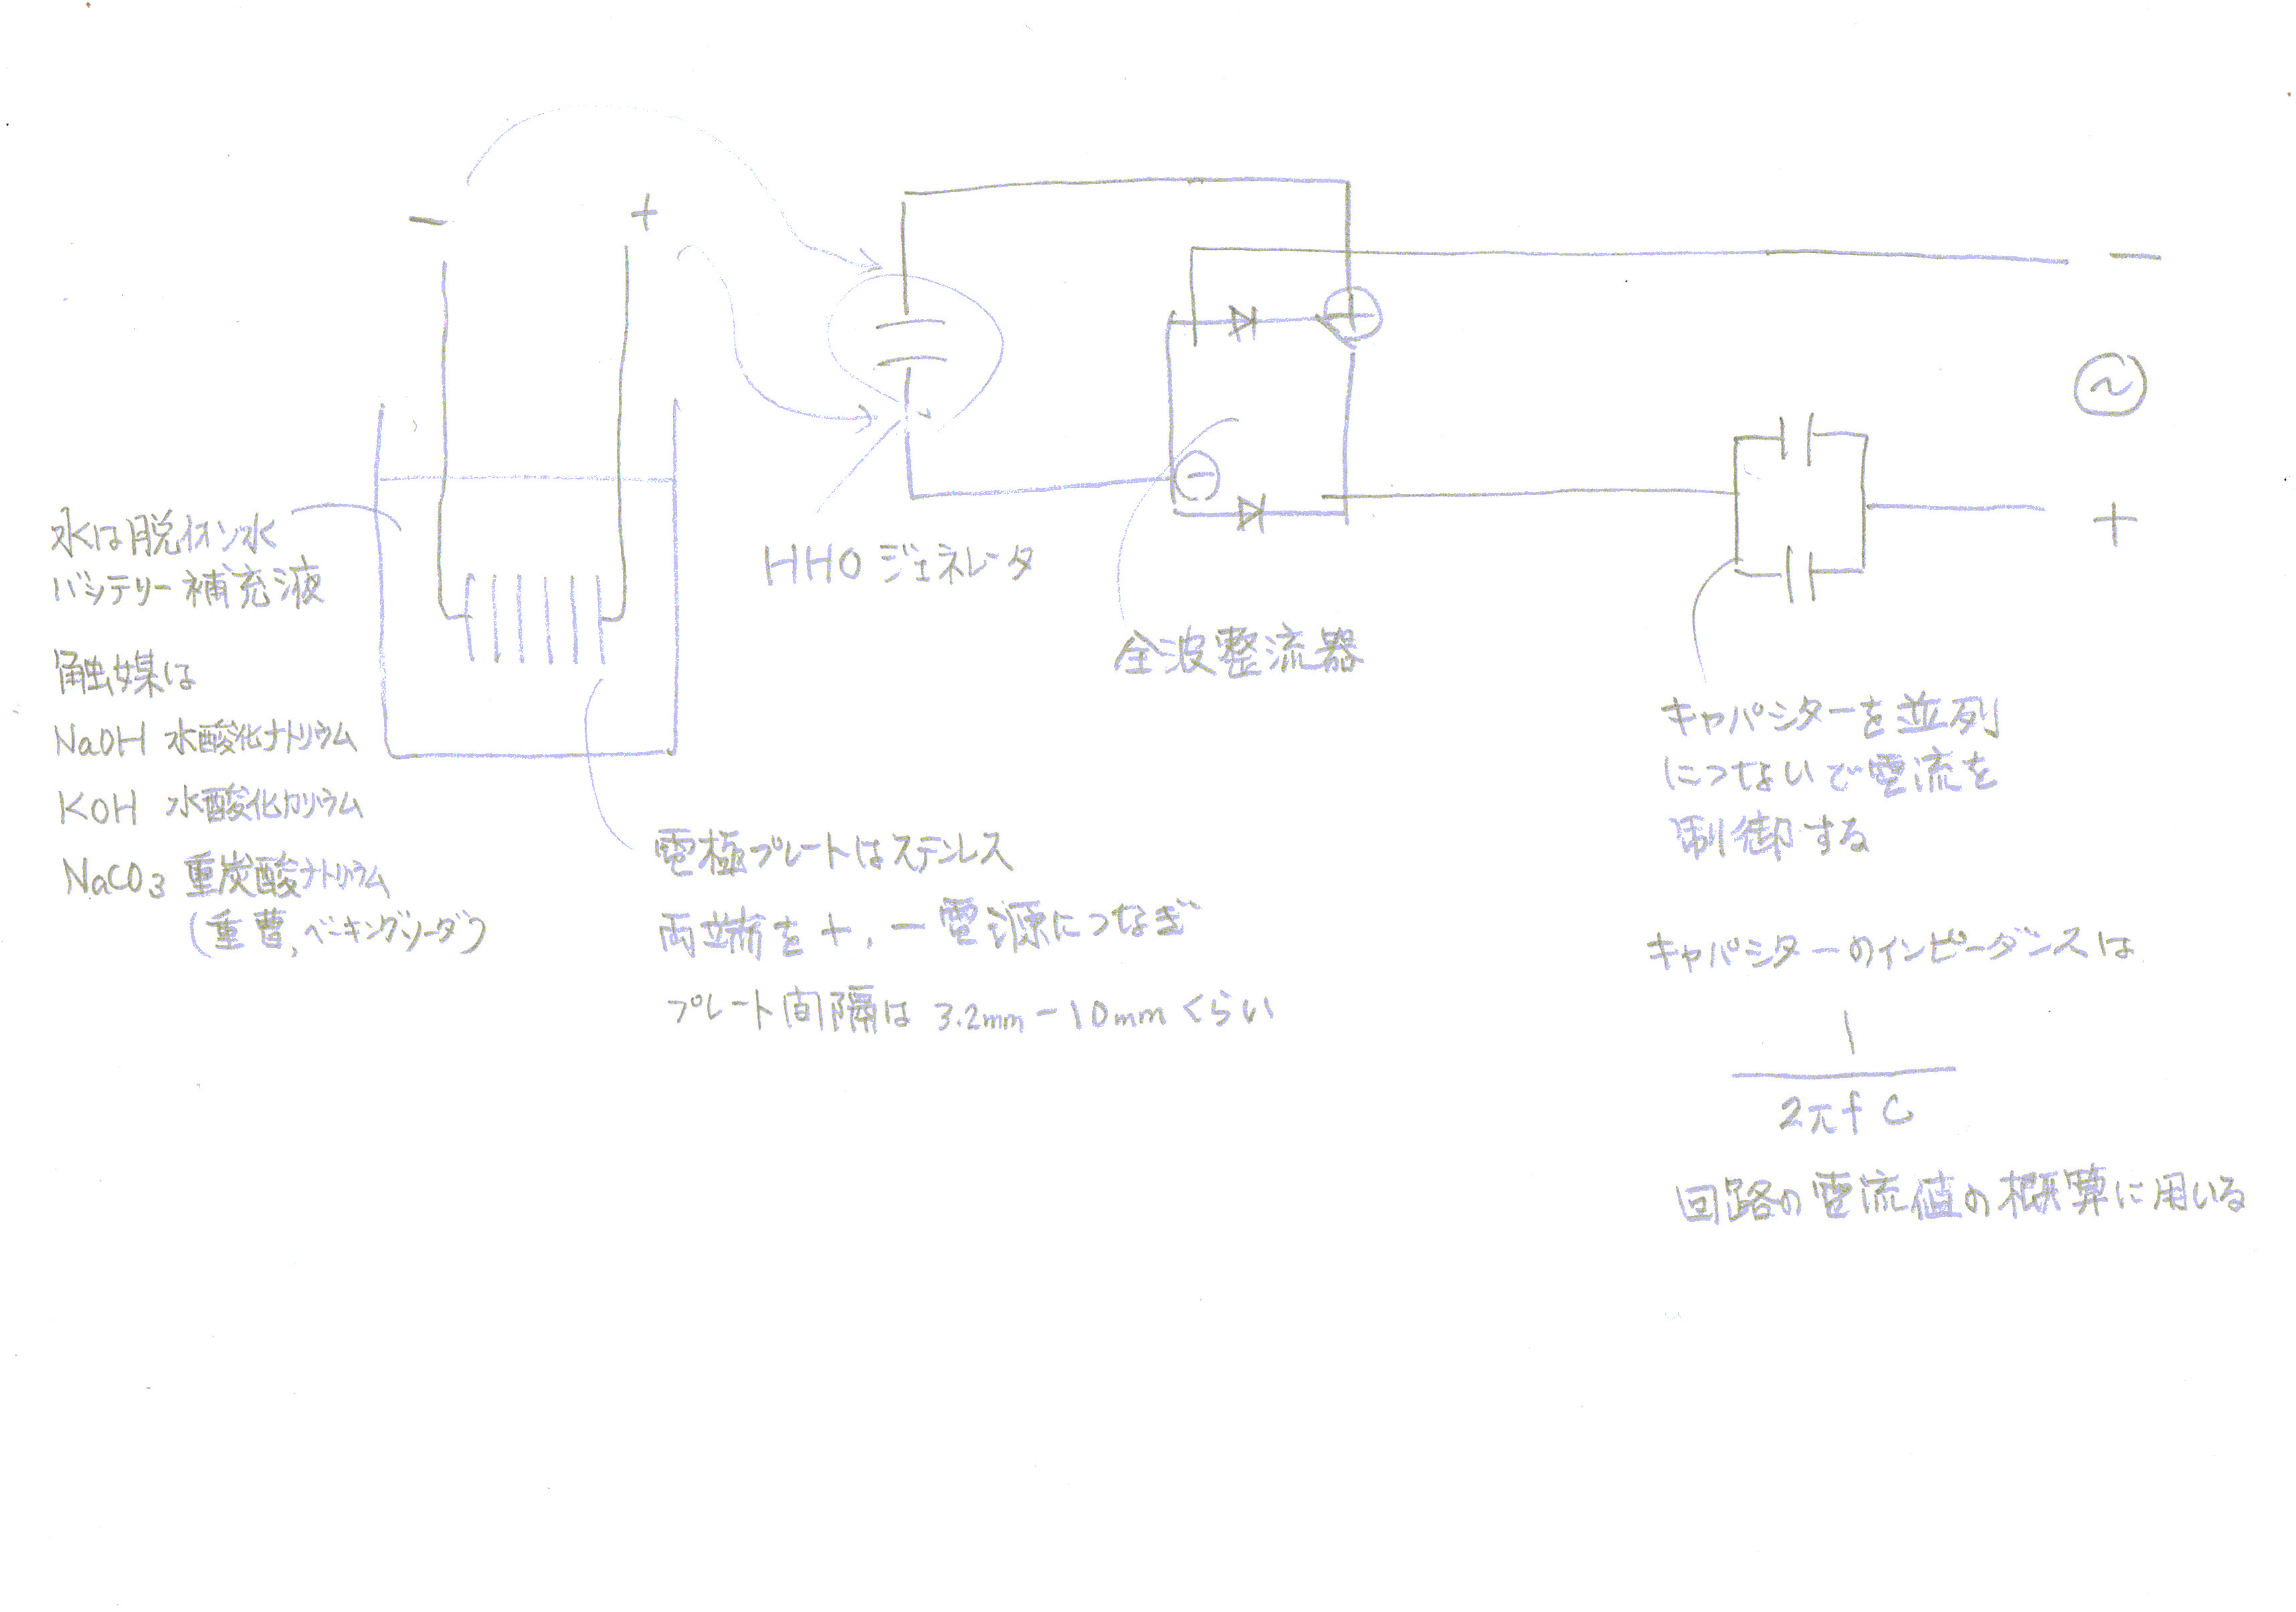 − +
水は脱イオン水
バッテリー補充液
触媒は
NaOH 水酸化ナトリウム
KOH 水酸化カリウム
NaCO3 重炭酸ナトリウム
(重曹,ベーキングソーダ)
電極プレートはステンレス
両端を+,−電源につなぎ
プレート間隔は 3.2mm−10mmくらい
HHO ジェネレータ
+
−
全波整流器
−
~
+
キャパシターを並列
につないで電流を
制御する
キャパシターのインピーダンスは
1
2πfC
回路の電流値の概算に用いる